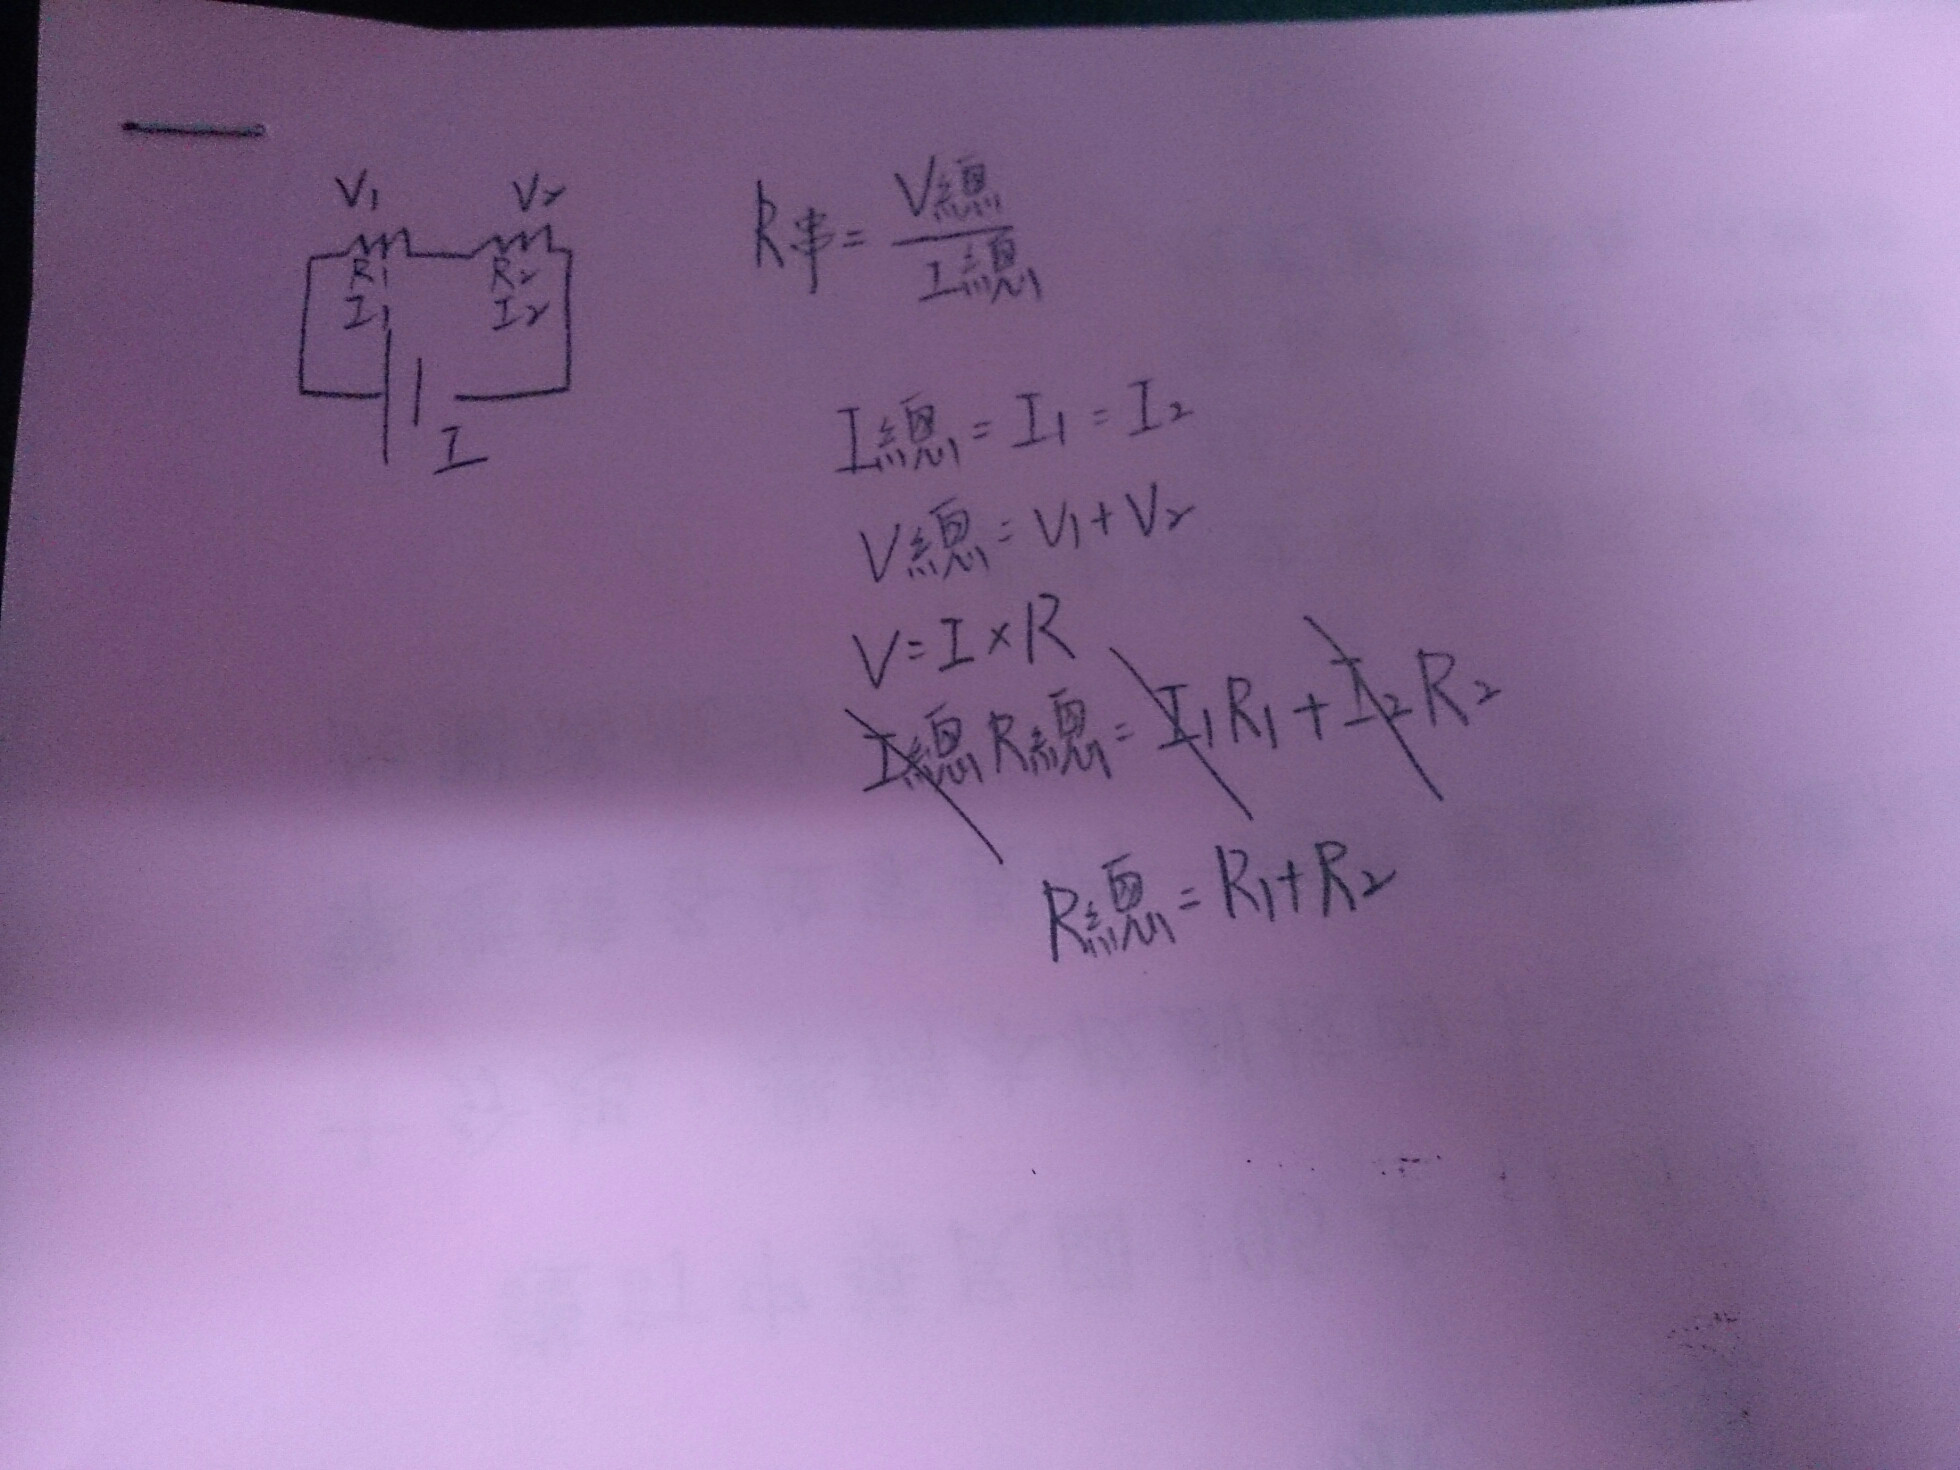 V1 V2
R1 R2
I1 I2
I
R串=V總/I總
I總=I1=I2
V總=V1+V2
V=I×R
I總R總=I1R1+I2R2
R總=R1+R2